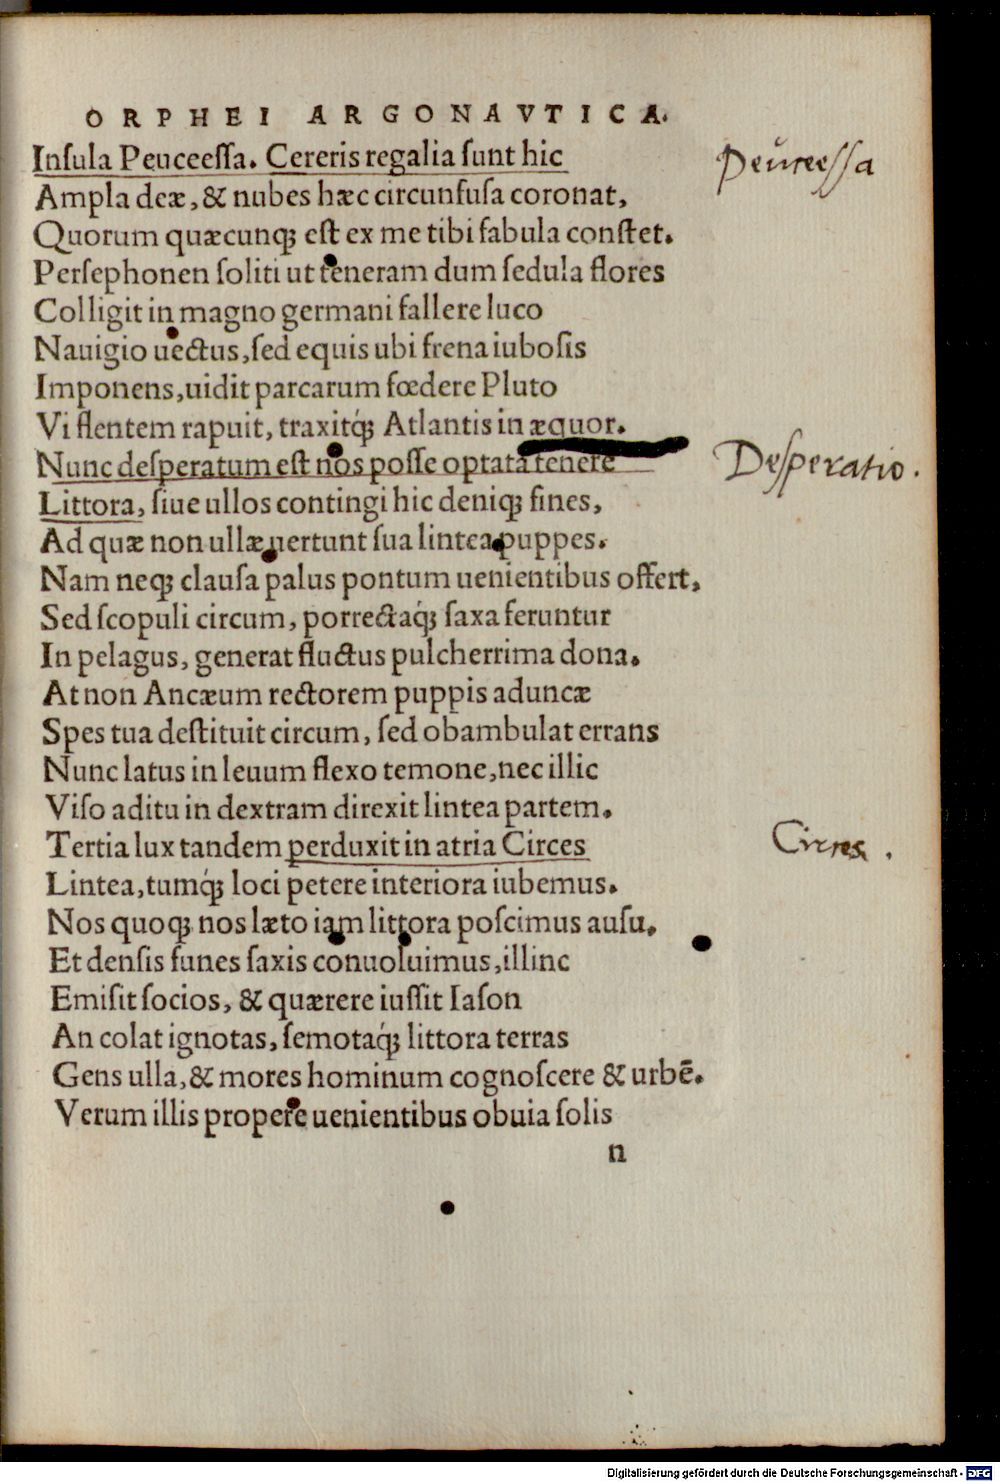 ORPHEI ARGONAVTICA.
Inſula Peuceeſſa. Cereris regalia ſunt hic
Peuceeſſa
Ampla deæ, & nubes hæc circunfuſa coronat,
Quorum quæcunqꝫ eſt ex me tibi fabula conſtet.
Perſephonen ſoliti ut teneram dum ſedula flores
Colligit in magno germani fallere luco
Nauigio uectus, ſed equis ubi frena iuboſis
Imponens, uidit parcarum fœdere Pluto
Vi flentem rapuit, traxitq́ꝫ Atlantis in æquor.
Nunc deſperatum eſt nos poſſe optata tenere
Deſperatio.
Littora, ſiue ullos contingi hic deniqꝫ fines,
Ad quæ non ullæ uertunt ſua lintea puppes.
Nam neqꝫ clauſa palus pontum uenientibus offert,
Sed ſcopuli circum, porrectaq́ꝫ ſaxa feruntur
In pelagus, generat fluctus pulcherrima dona.
At non Ancæum rectorem puppis aduncæ
Spes tua deſtituit circum, ſed obambulat errans
Nunc latus in leuum flexo temone, nec illic
Viſo aditu in dextram direxit lintea partem.
Tertia lux tandem perduxit in atria Circes
Circes.
Lintea, tumq́ꝫ loci petere interiora iubemus.
Nos quoqꝫ nos læto iam littora poſcimus auſu.
Et denſis funes ſaxis conuoluimus, illinc
Emiſit ſocios, & quærere iuſſit Iaſon
An colat ignotas, ſemotaq́ꝫ littora terras
Gens ulla, & mores hominum cognoſcere & urbē.
Verum illis propere uenientibus obuia ſolis
n
Digitalisierung gefördert durch die Deutsche Forschungsgemeinschaft - DFG